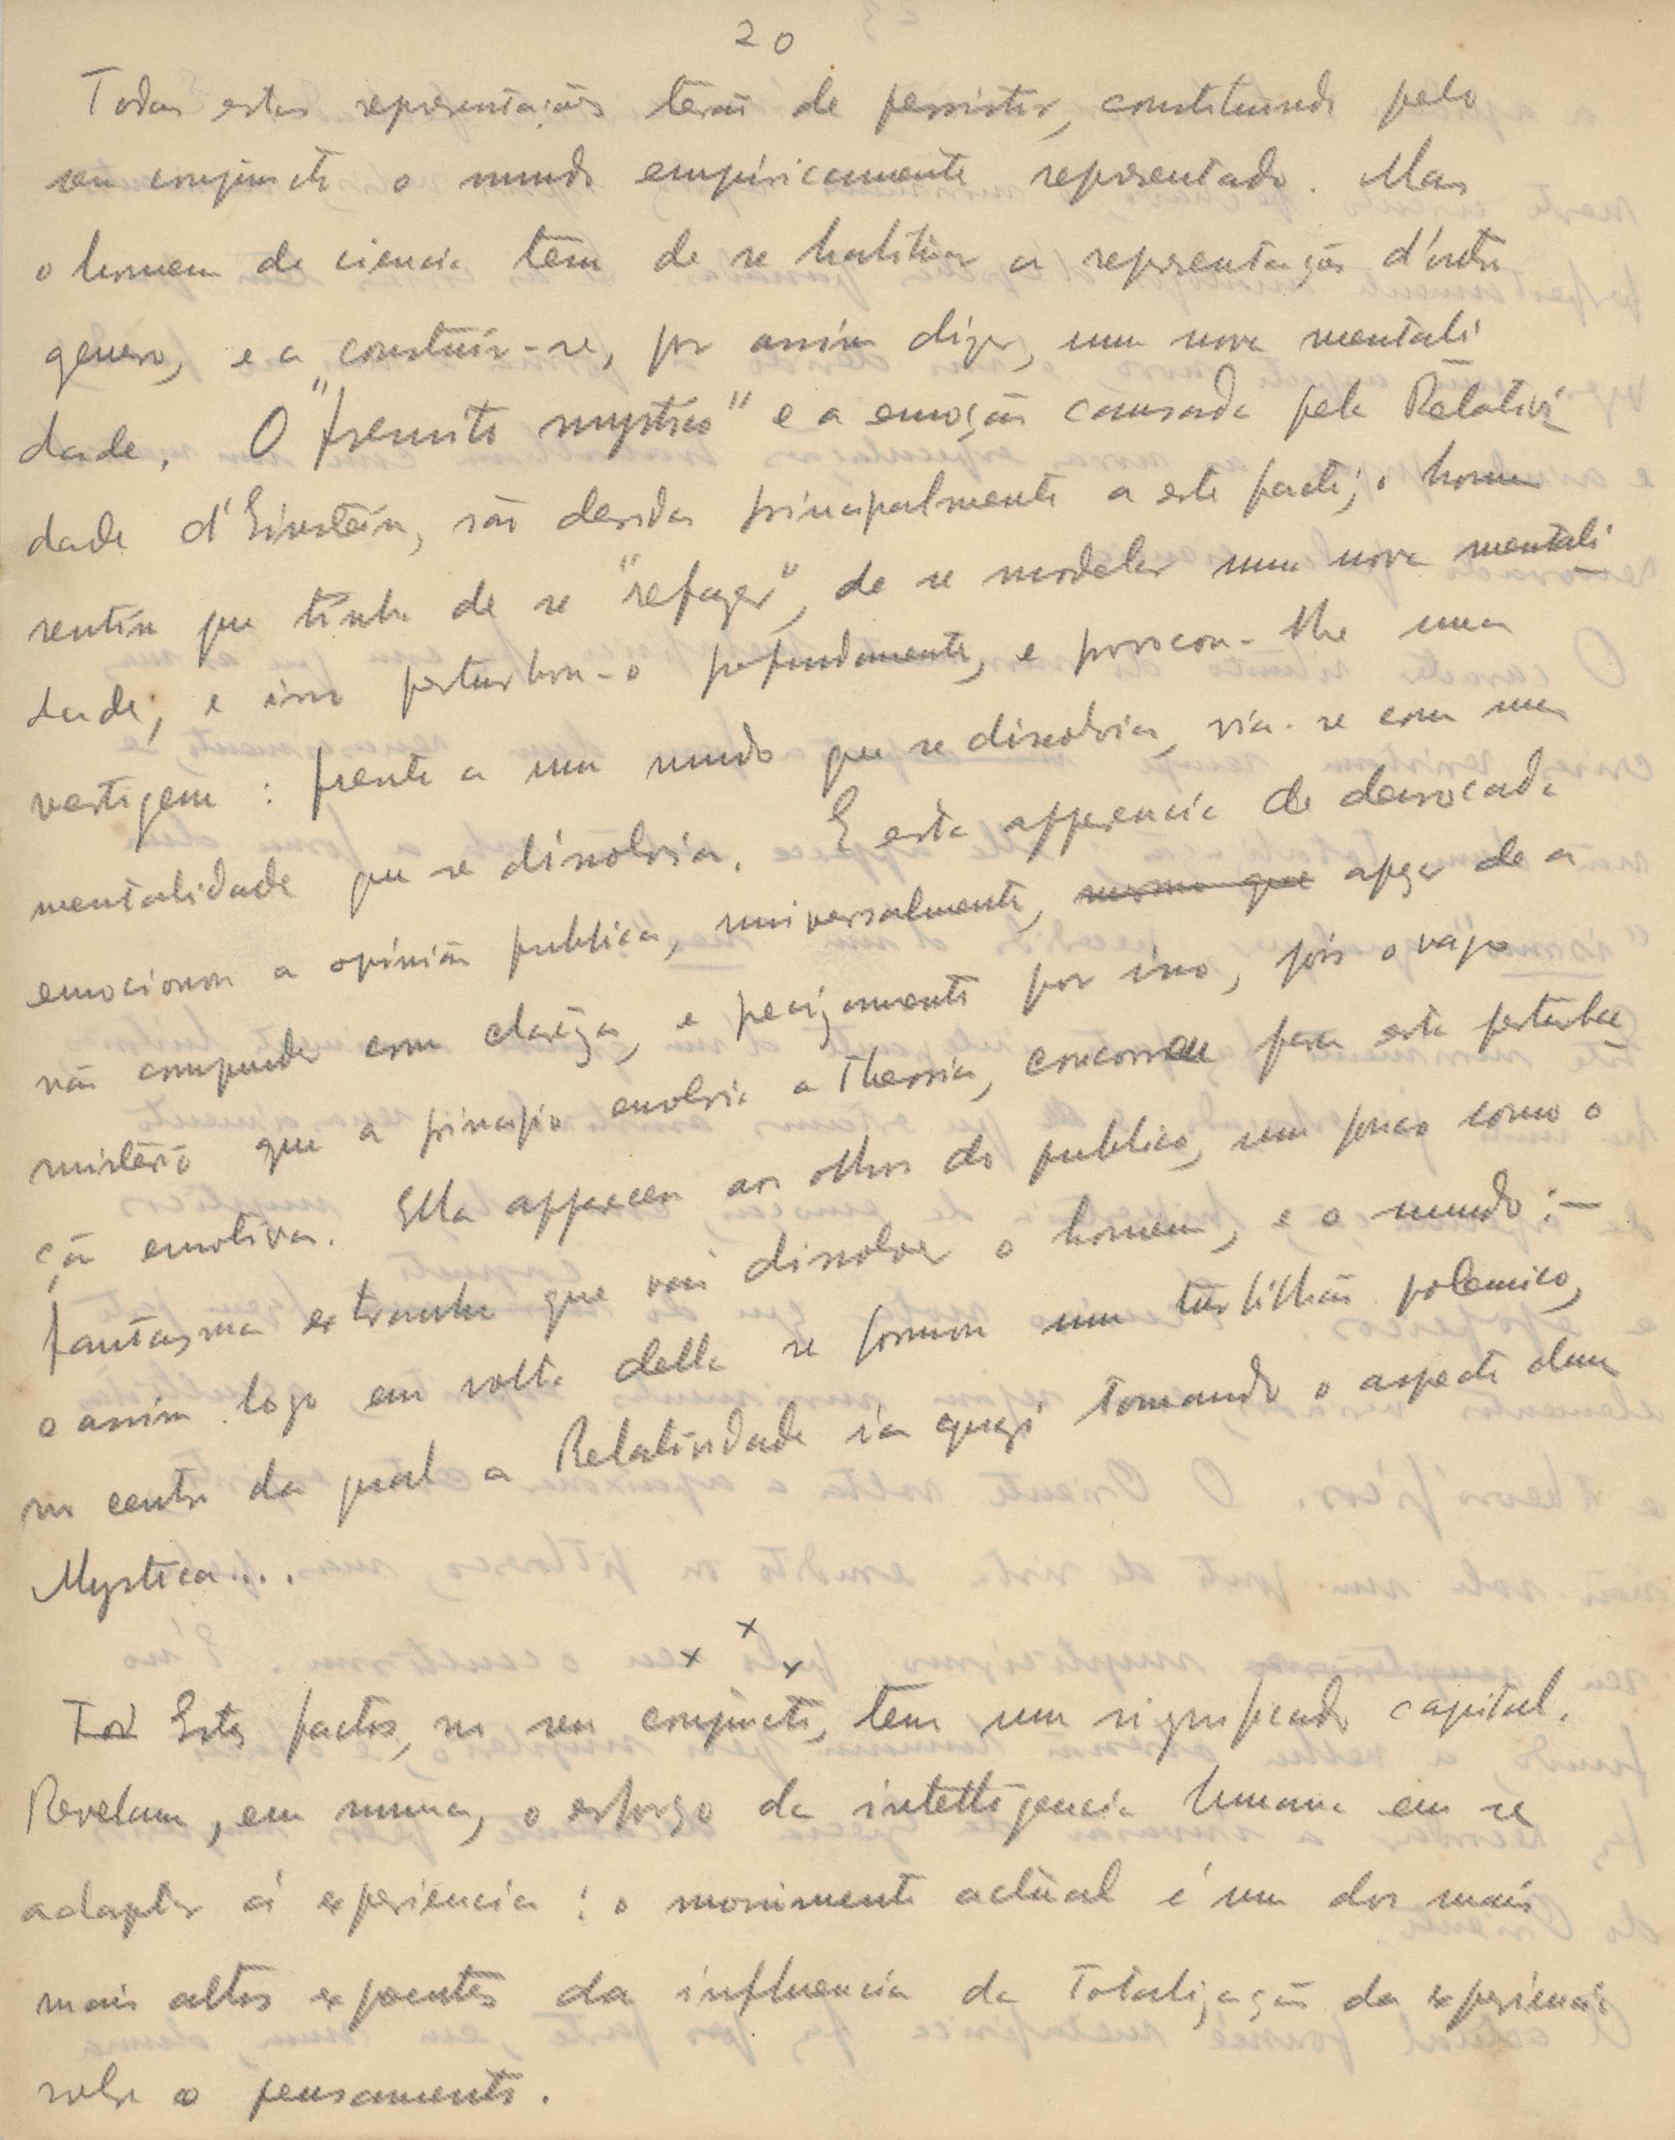 20
Todas estas representações terão de persistir, constituindo pelo
seu conjuncto o mundo empiricamente representado. Mas
o homem de ciencia tem de se habituar a representação d'outro
genero, e a construir-se, por assim dizer, uma nova mentali
dade. O "fremito mystico" e a emoção causada pela Relativi
dade d'Einstein, são devidas principalmente a este facto; o homem
sentiu que tinha de se "refazer", de se modelar uma nova mentali
dade, e isso perturbou-o profundamente, e provocou-lhe uma
vertigem: frente a um mundo que se dissolvia, via-se com uma
mentalidade que se dissolvia. E esta apparencia de derrocada
emocionou a opinião publica, universalmente, mesmo que apezar de a
não comprehender com clareza, e precizamente por isso, pois o vago
misterio que a principio envolvia a Theoria, concorreu para esta perturba
ção emotiva. Ella appareceu aos olhos do publico, um pouco como o
fantasma extranho que vai dissolver o homem, e o mundo: —
e assim logo em volta della se formou um turbilhão polemico,
no centro da qual a Relatividade ia quazi tomando o aspecto duma
Mystica....
x x x
Tod Estes factos, no seu conjuncto, tem um significado capital.
Revelam, em summa, o esforço da intelligencia humana em se
adaptar á experiencia: o movimento actual é um dos mais
mais altos expoentes da influencia da Totalização da experiencia
sobre o pensamento.